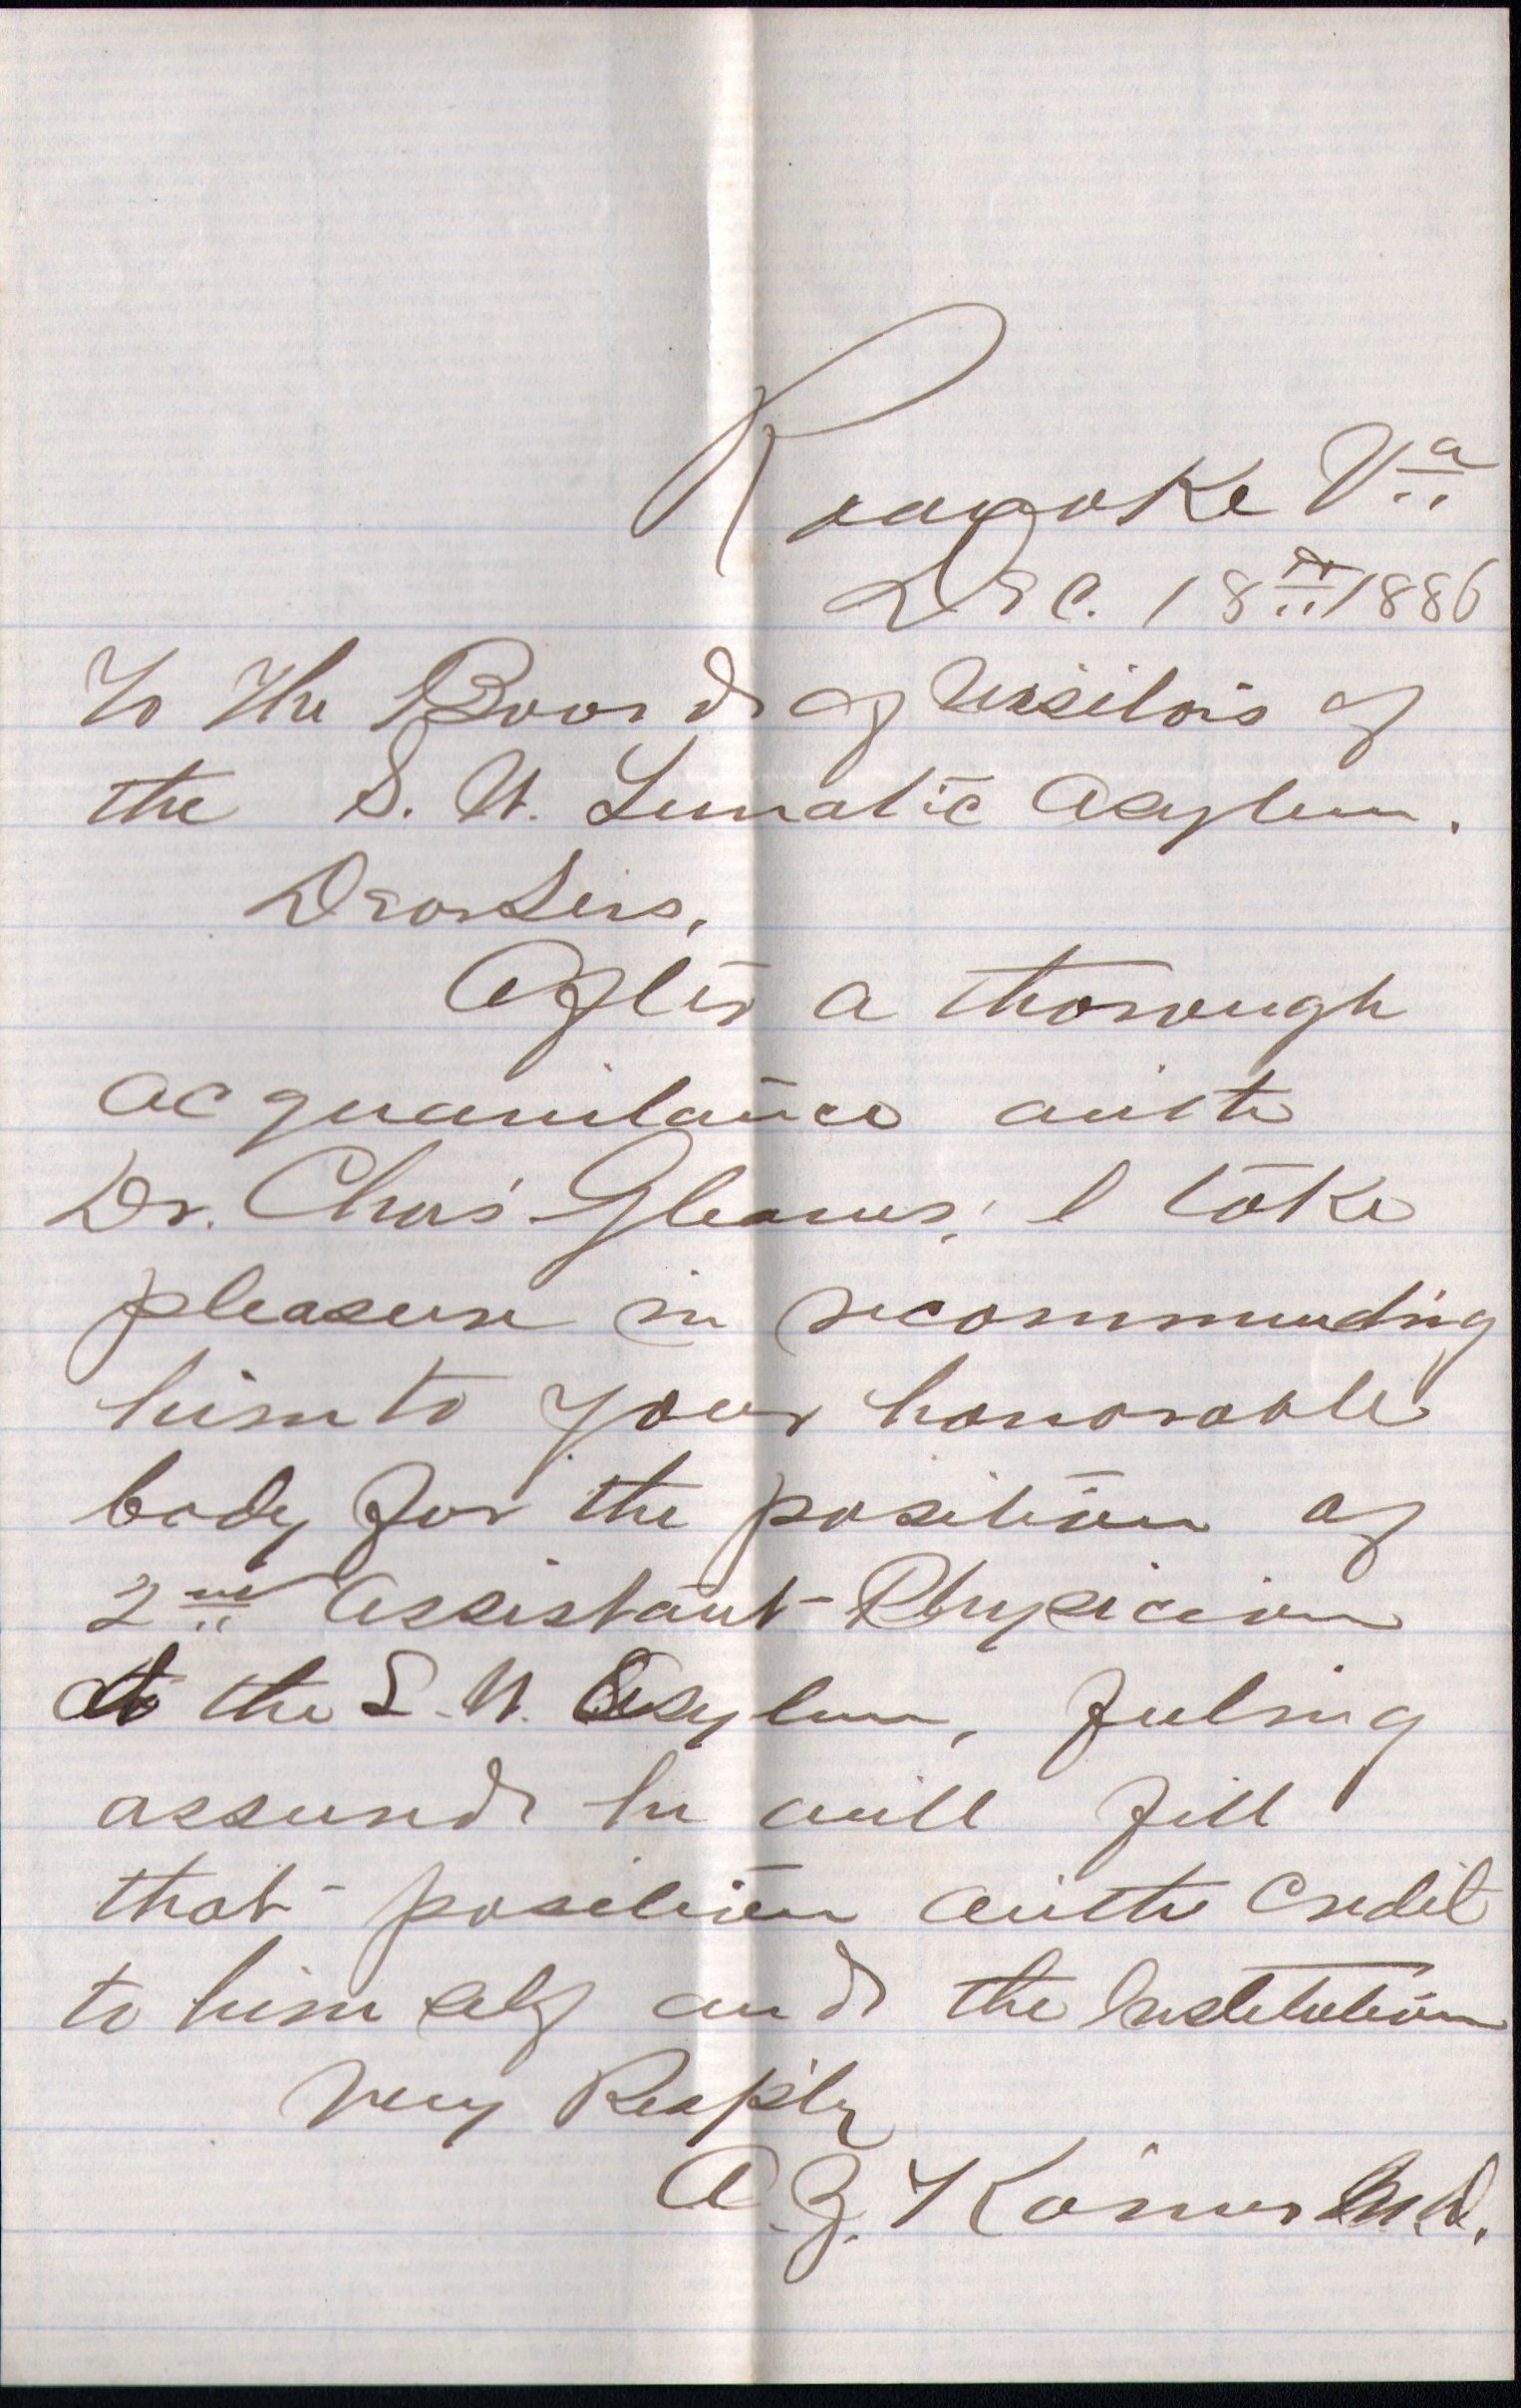 Roanoke Va
Dec. 18th 1886
To the Board of Visitors of
the S. W. Lunatic Asylum.
Dear Sirs,
After a thorough
acquaintance with
Dr. Chas Gleaves, I take
pleasure in recommending
him to your honorable
body for the position of
2nd Assistant Physician
to the S. W. Asylum, feeling
assured he will fill
that position with credit
to himself and the Institution
Very Resptly
A. Z. Koiner M.D.